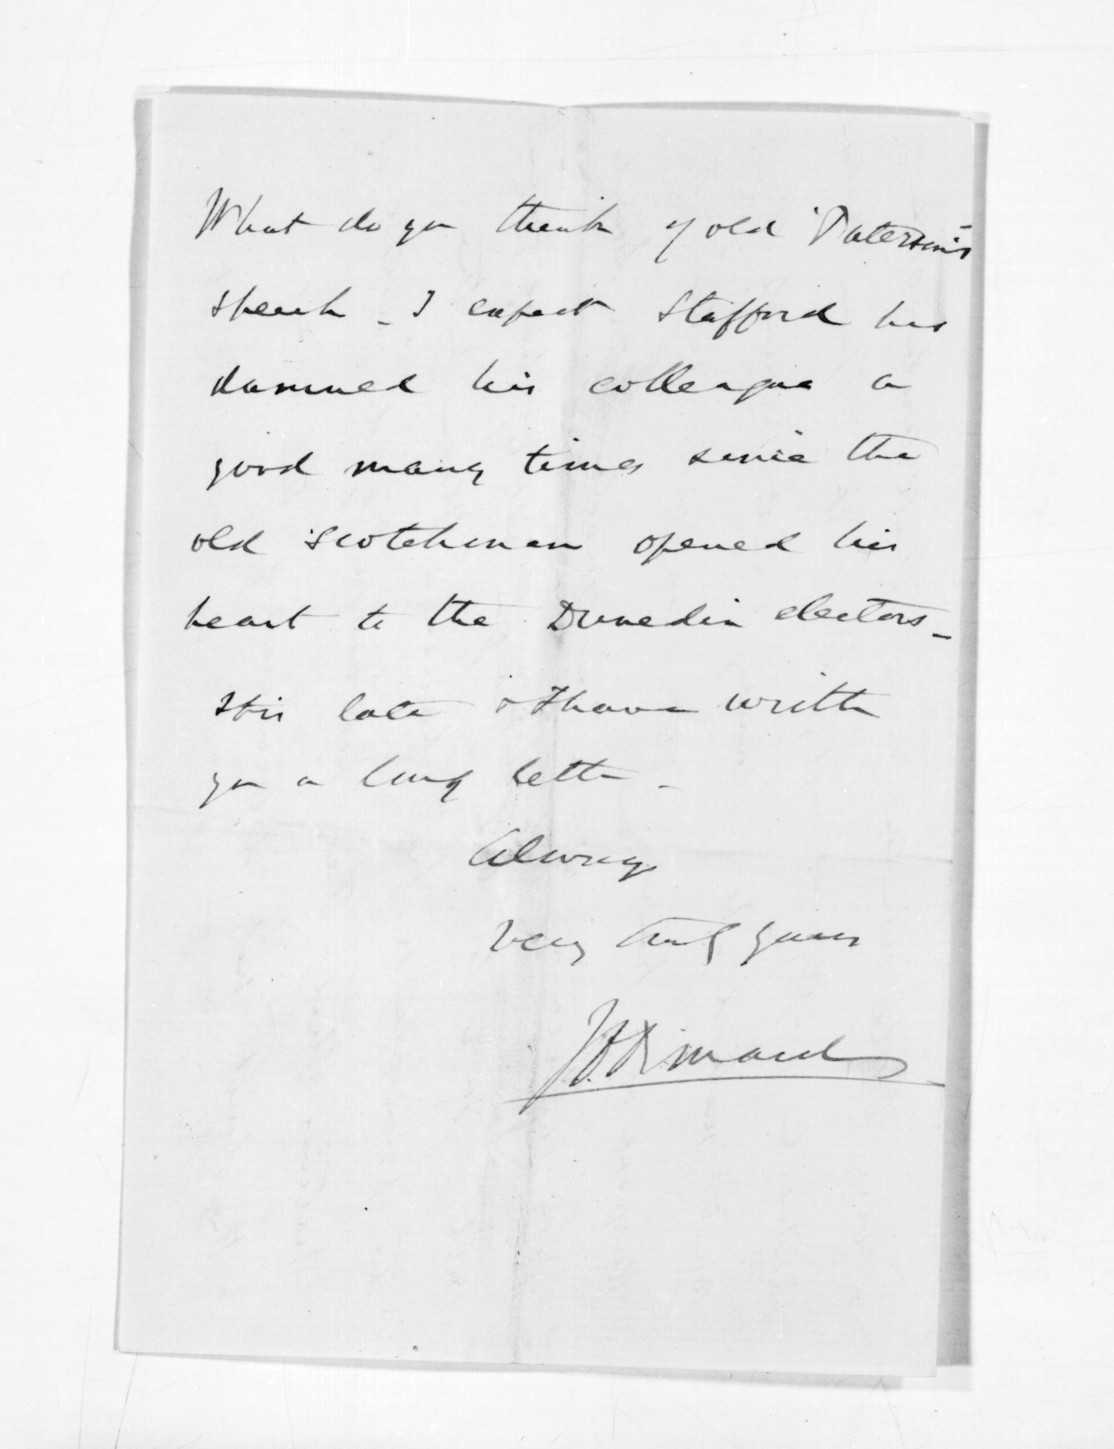 What do you think of old Paterson's
speech - I expect Stafford has
damned his colleague a
good many times since the
old Scotchman opened his
heart to the Dunedin electors -
It is late & I have written
you a long letter -
Always
Very truly yours
J.D. Ormond